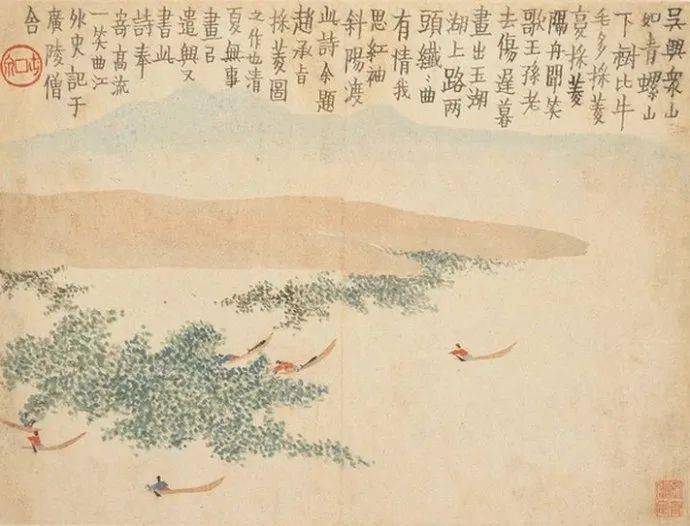 吳興衆山
如青螺山
下樹比牛
毛多採菱
復採菱
隔舟聞笑
歌王孫老
去傷遲暮
畫出玉湖
湖上路兩
頭纖〻曲
有情我
思紅袖
斜陽渡
此詩余題
趙承旨
採菱圖
之作也清
夏無事
畫
遣興又
書此
詩奉
寄高流
一笑曲江
外史記于
廣陵僧
舍